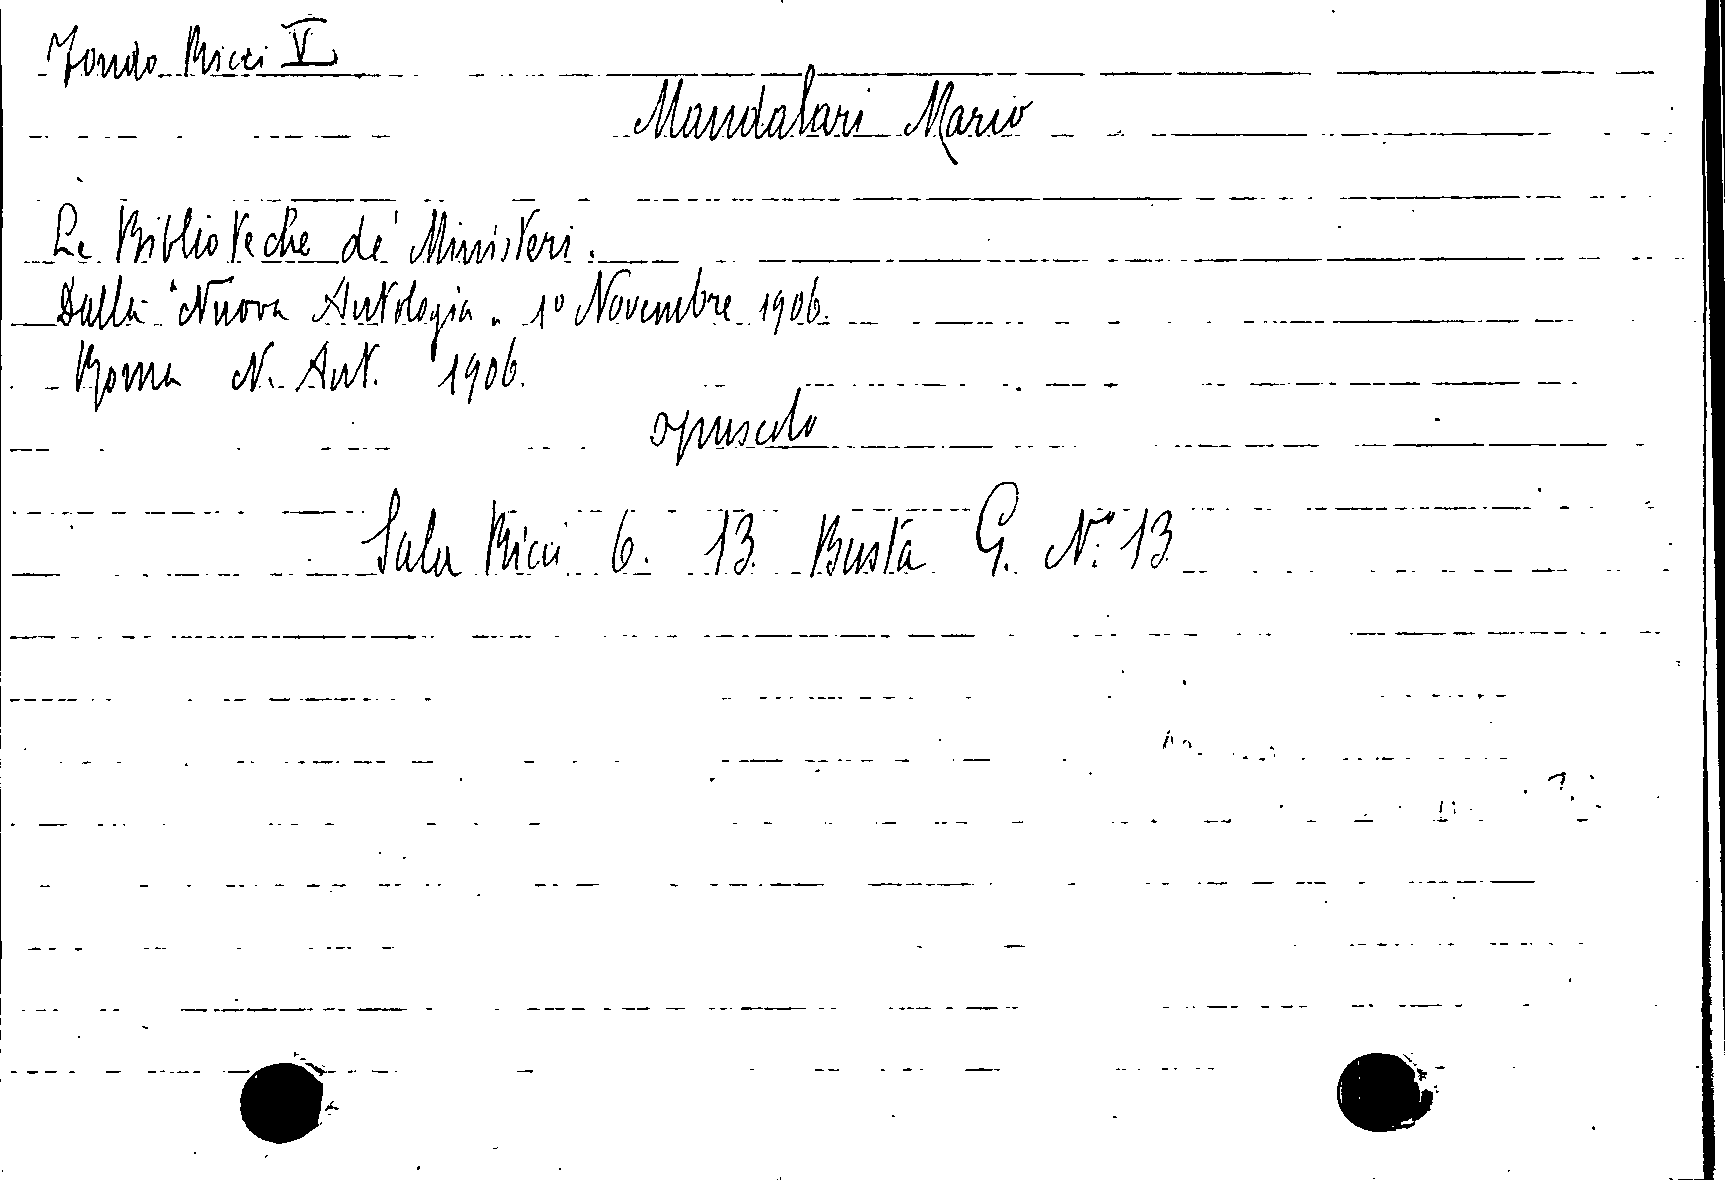 Fondo Ricci V
Mandalari Mario
Le Biblioteche de' Ministeri.
Dalla "Nuova Antologia" 1° Novembre 1906.
Roma N. Ant. 1906.
opuscolo
Sala Ricci 6. 13. Busta G. N° 13